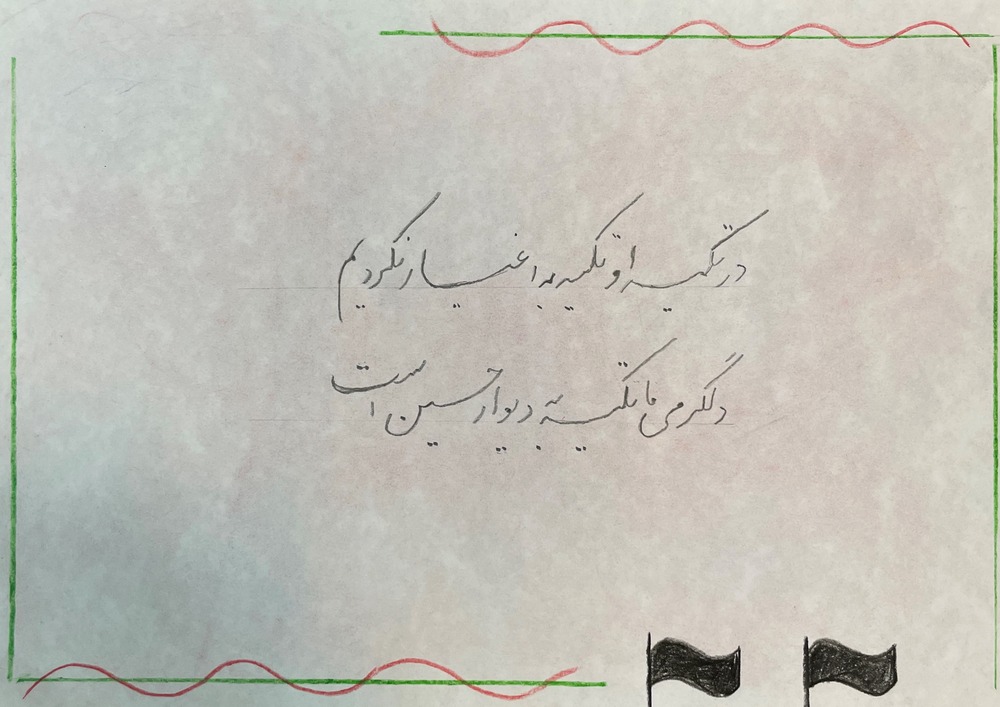 در تکیه او تکیه به اغیار نکردیم
دلگرمی ما تکیه به دیوار حسین است